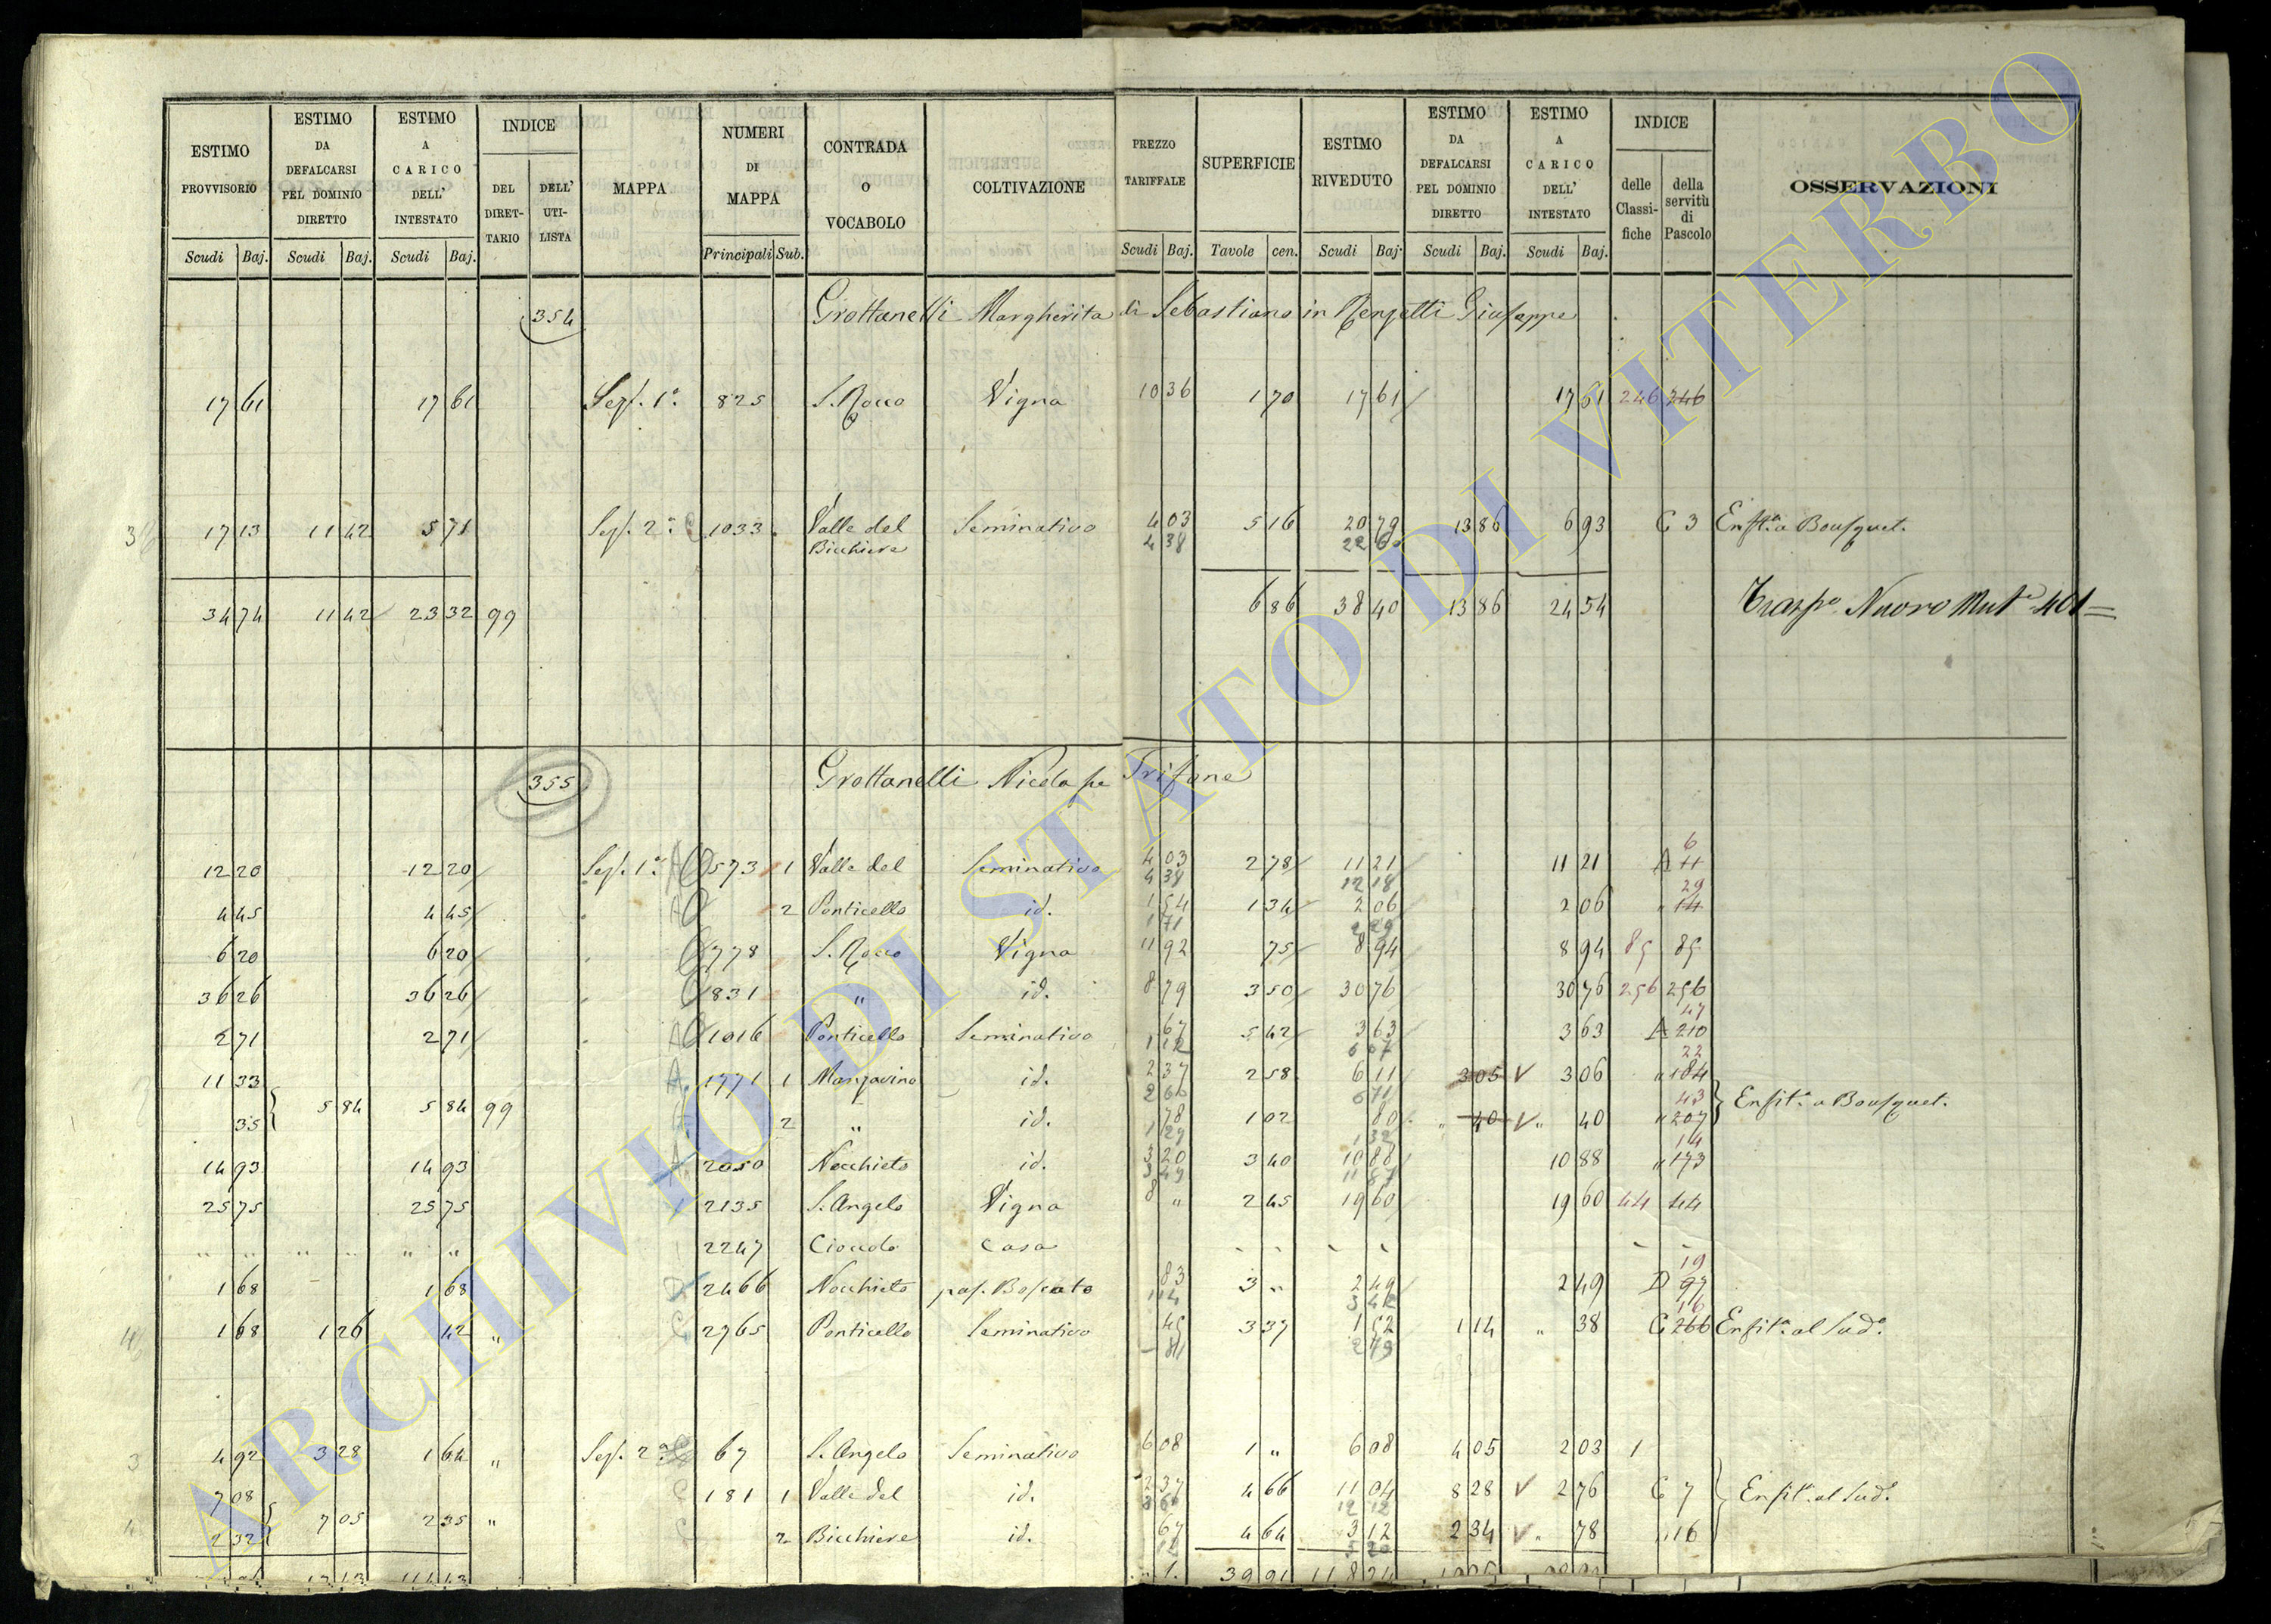 ESTIMO PROVVISORIO | ESTIMO DA DEFALCARSI PEL DOMINIO DIRETTO | ESTIMO A CARICO DELL' INTESTATO | INDICE | MAPPA | NUMERI DI MAPPA | CONTRADA O VOCABOLO | COLTIVAZIONE | PREZZO TARIFFALE | SUPERFICIE | ESTIMO RIVEDUTO | ESTIMO DA DEFALCARSI PEL DOMINIO DIRETTO | ESTIMO A CARICO DELL' INTESTATO | INDICE | OSSERVAZIONI
DEL DIRET-TARIO | DELL' UTI-LISTA | delle Classi-fiche | della servitù di Pascolo
Scudi | Baj. | Scudi | Baj. | Scudi | Baj. | Principali | Sub. | Scudi | Baj. | Tavole | cen. | Scudi | Baj | Scudi | Baj. | Scudi | Baj.
354 Grottanelli Margherita di Sebastiano in Renzetti Giuseppe
17 61 | 17 61 | Sez. 1a | 825 | S. Rocco | Vigna | 10 36 | 1 70 | 17 61 | 17 61 | 246 | 246
3 | 17 13 | 11 42 | 5 71 | Sez. 2a | 1033 | Valle del | Seminativo | 4 03 | 5 16 | 20 79 | 13 86 | 6 93 | C 3 | Enfit.a a Bousquet.
Bicchiere | 4 38 | 22 60
34 74 | 11 42 | 23 32 | 99 | 6 86 | 38 40 | 13 86 | 24 54 | Trasp.o Nuovo Mut.e 401
355 Grottanelli Nicola fu Trifone
12 20 | 12 20 | Sez. 1a | A | 573 | 1 | Valle del | Seminativo | 4 03 | 2 78 | 11 21 | 11 21 | A 11 | 6
4 38 | 12 18
4 45 | 4 45 | A | 2 | Ponticello | id. | 1 54 | 1 34 | 2 06 | 2 06 | " 14 | 29
1 71 | 2 29
6 20 | 6 20 | 778 | S. Rocco | Vigna | 11 92 | 75 | 8 94 | 8 94 | 85 | 85
36 26 | 36 26 | 831 | " | id. | 8 79 | 3 50 | 30 76 | 30 76 | 256 | 256
2 71 | 2 71 | A | 1016 | Ponticello | Seminativo | 67 | 5 42 | 3 63 | 3 63 | A 210 | 47
1 12 | 6 07
11 33 | A | 1771 | 1 | Manzavino | id. | 2 37 | 2 58 | 6 11 | 3 05 | V | 3 06 | " 184 | 22
2 60 | 6 71
5 84 | 5 84 | 99 | Enfit.a a Bousquet.
35 | 2 | " | id. | 78 | 1 02 | 80 | " 40 | V " | 40 | " 207 | 43
1 29 | 1 32
14 93 | 14 93 | A | 2050 | Nocchieto | id. | 3 20 | 3 40 | 10 88 | 10 88 | " 173 | 14
3 49 | 11 87
25 75 | 25 75 | 2135 | S. Angelo | Vigna | 8 " | 2 45 | 19 60 | 19 60 | 44 | 44
" " | " " | " " | 2247 | Casa
1 68 | 1 68 | D | 2466 | Nocchieto | pas. Boscato | 83 | 3 " | 2 49 | 2 49 | D 97 | 19
1 14 | 3 42
1 68 | 1 26 | 42 | " | C | 2765 | Ponticello | Seminativo | 45 | 3 37 | 1 52 | 1 14 | " 38 | C 266 | 16 | Enfit.a al Sud.o
81 | 2 73
3 | 4 92 | 3 28 | 1 64 | " | Sez. 2a | 67 | S. Angelo | Seminativo | 6 08 | 1 " | 6 08 | 4 05 | 2 03 | 1
7 08 | C | 181 | 1 | Valle del | id. | 2 37 | 4 66 | 11 04 | 8 28 | V | 2 76 | C 7 | Enfit.a al Sud.o
2 60 | 12 12
4 | 7 05 | 2 35 | "
2 32 | C | 2 | Bicchiere | id. | 67 | 4 64 | 3 12 | 2 34 | V " | 78 | " 16
39 91 | 118 24
ARCHIVIO DI STATO DI VITERBO